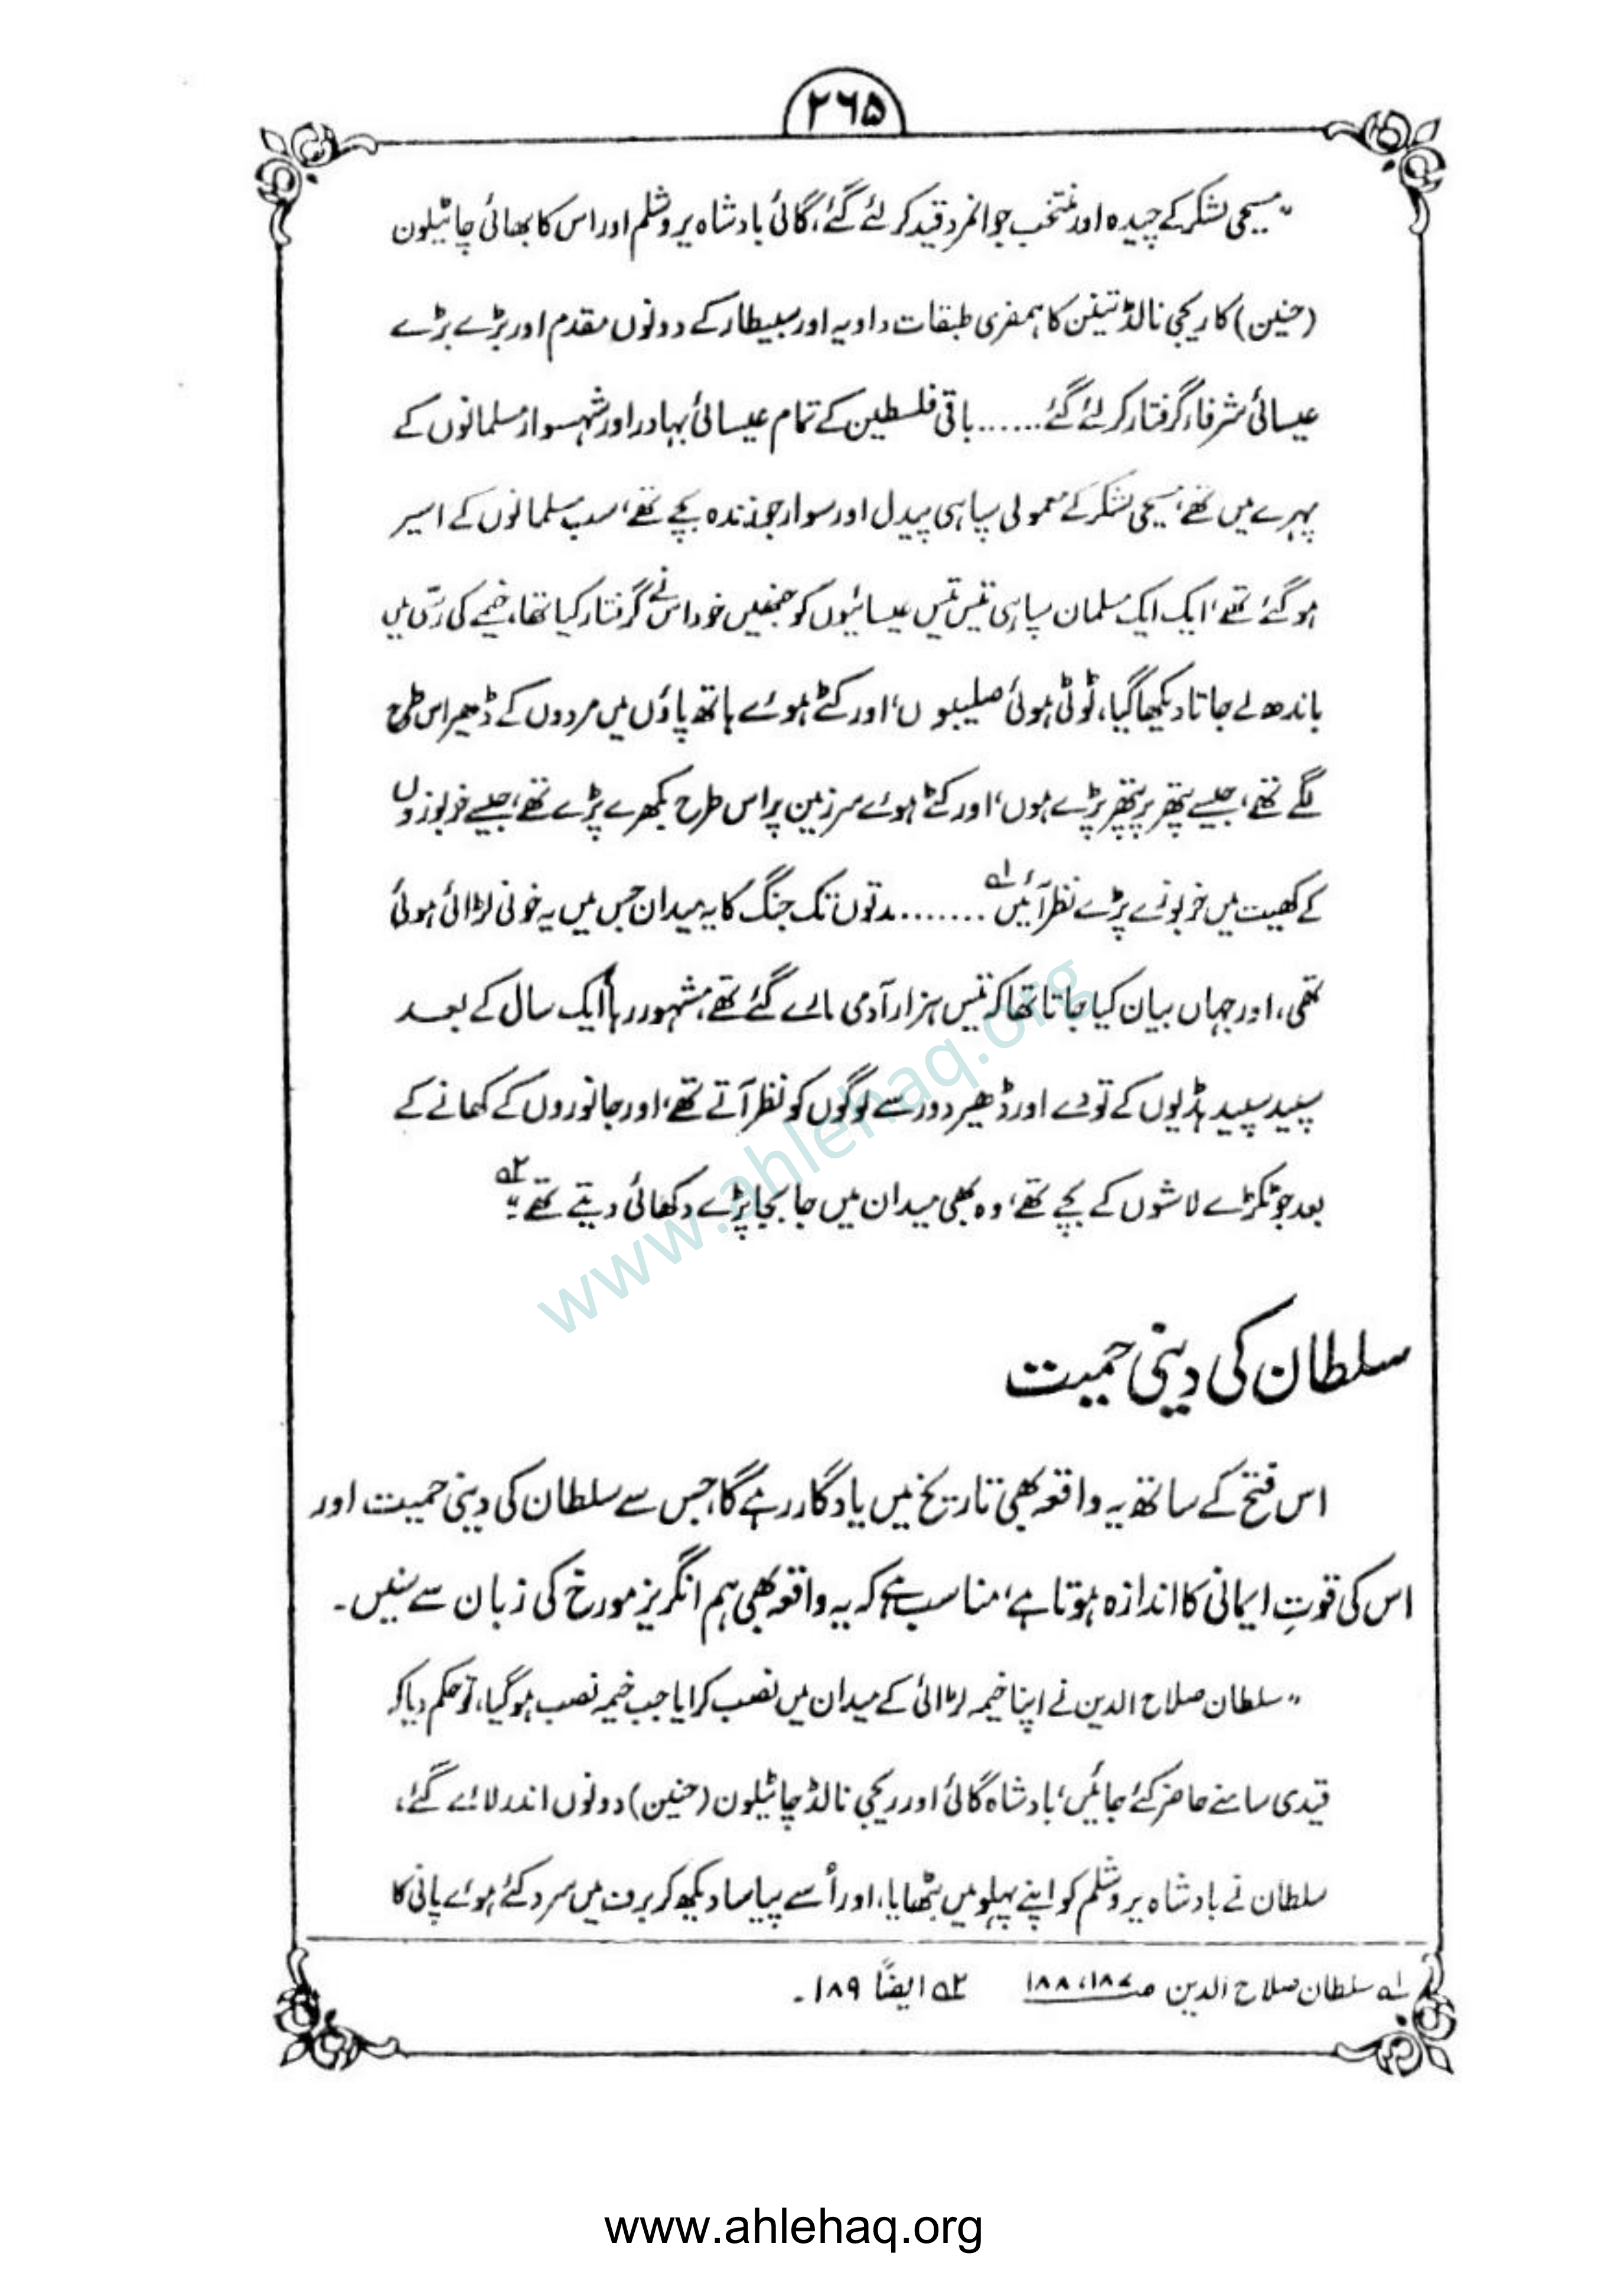 ۲۶۵
"مسیحی لشکر کے چیدہ اور منتخب جوانمرد قید کر لئے گئے، گائی بادشاہ یروشلم اور اس کا بھائی چاٹیلون
(حنین) کا ریجی نالڈ تینن کا ہمفری طبقات داویہ اور سبیطار کے دونوں مقدم اور بڑے بڑے
عیسائی شرفاء گرفتار کر لئے گئے......باقی فلسطین کے تمام عیسائی بہادر اور شہسوار مسلمانوں کے
پہرے میں تھے، مسیحی لشکر کے معمولی سپاہی پیدل اور سوار جو زندہ بچے تھے، سب مسلمانوں کے اسیر
ہو گئے تھے، ایک ایک مسلمان سپاہی تیس تیس عیسائیوں کو جنھیں خود اس نے گرفتار کیا تھا، خیمے کی رسّی میں
باندھ لے جاتا دیکھا گیا، ٹوٹی ہوئی صلیبوں، اور کٹے ہوئے ہاتھ پاؤں میں مردوں کے ڈھیر اس طرح
لگے تھے، جیسے پتھر پر پتھر پڑے ہوں، اور کٹے ہوئے سر زمین پر اس طرح بکھرے پڑے تھے، جیسے خربوزوں
کے کھیت میں خربوزے پڑے نظر آئیں؎۱ .......مدتوں تک جنگ کا یہ میدان جس میں یہ خونی لڑائی ہوئی
تھی، اور جہاں بیان کیا جاتا تھا کہ تیس ہزار آدمی مارے گئے تھے، مشہور رہا ایک سال کے بعد
سپید سپید ہڈیوں کے تودے اور ڈھیر دور سے لوگوں کو نظر آتے تھے، اور جانوروں کے کھانے کے
بعد جو ٹکڑے لاشوں کے بچے تھے، وہ بھی میدان میں جا بجا پڑے دکھائی دیتے تھے"؎۲
سلطان کی دینی حمیت
اس فتح کے ساتھ یہ واقعہ بھی تاریخ میں یادگار رہے گا، جس سے سلطان کی دینی حمیت اور
اس کی قوتِ ایمانی کا اندازہ ہوتا ہے، مناسب ہے کہ یہ واقعہ بھی ہم انگریز مورخ کی زبان سے سنیں۔
"سلطان صلاح الدین نے اپنا خیمہ لڑائی کے میدان میں نصب کرایا جب خیمہ نصب ہو گیا، تو حکم دیا کہ
قیدی سامنے حاضر کئے جائیں، بادشاہ گائی اور ریجی نالڈ چاٹیلون (حنین) دونوں اندر لائے گئے،
سلطان نے بادشاہ یروشلم کو اپنے پہلو میں بٹھایا، اور اُسے پیاسا دیکھ کر برف میں سرد کئے ہوئے پانی کا
؎۱ سلطان صلاح الدین ص۱۸۷،۱۸۸ ؎۲ ایضاً ۱۸۹۔
www.ahlehaq.org
www.ahlehaq.org